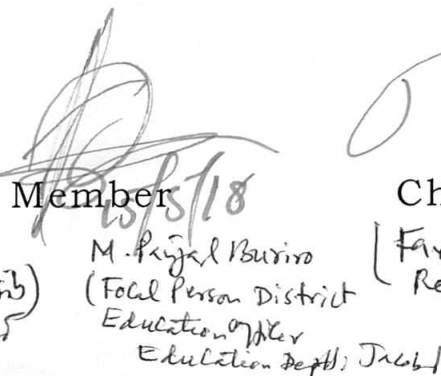 Member Ch
15/5/18
M. Panjal Buriro
(Focal Person District
Education Officer
Education Deptt; Jacob
Re